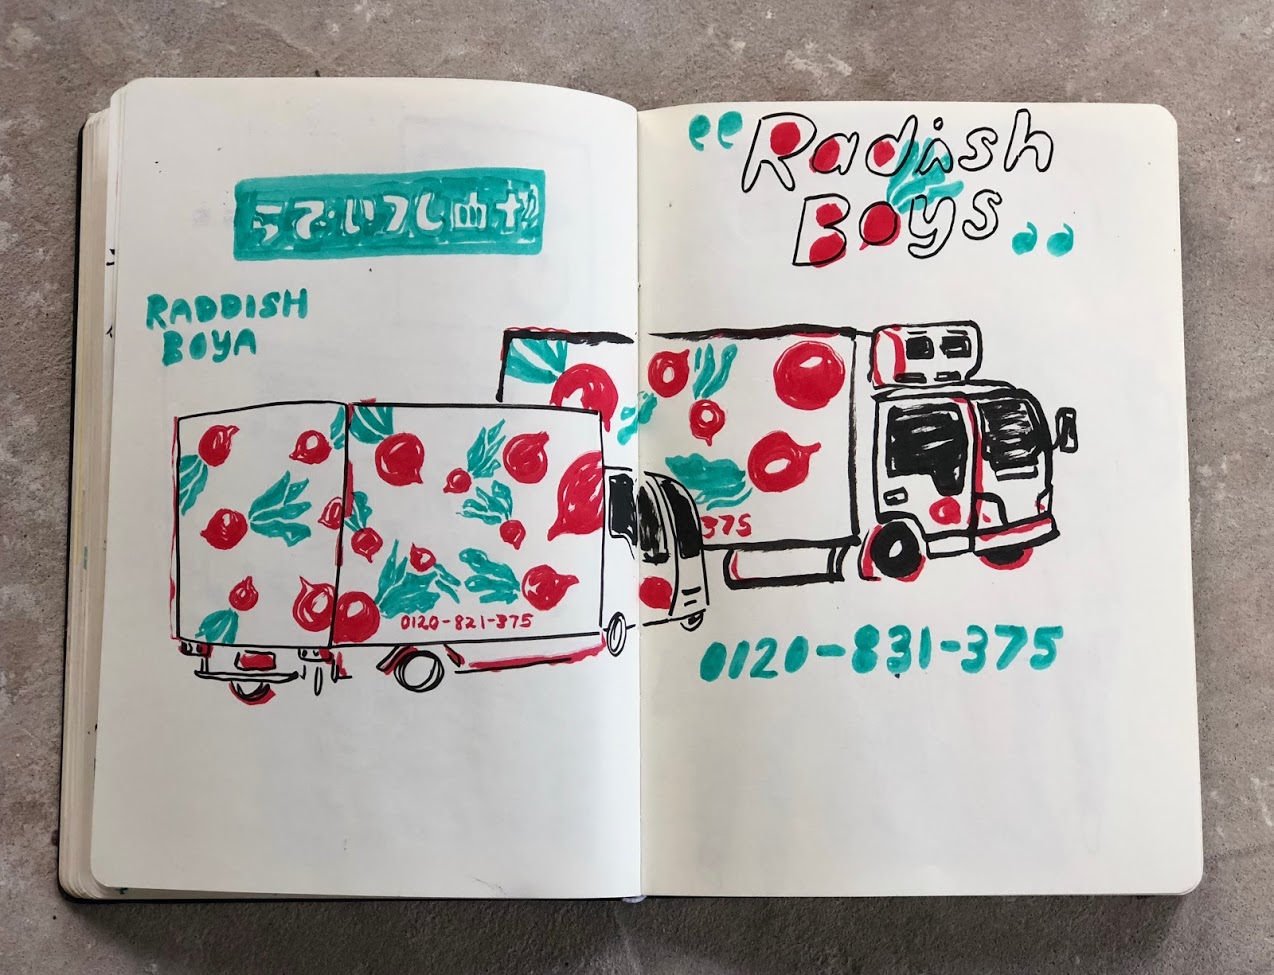 らでぃっし
RADDISH
BOYA
0120-821-375
"Radish
Boys"
375
0120-831-375